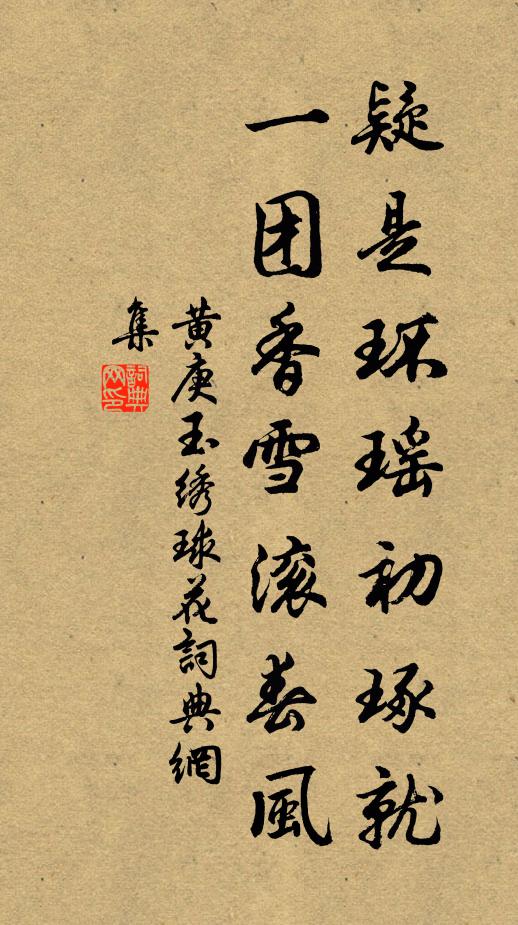 疑是环瑶初琢就
一团香雪滚春風
黄庚玉绣球花詞典網
集
詞典
网印